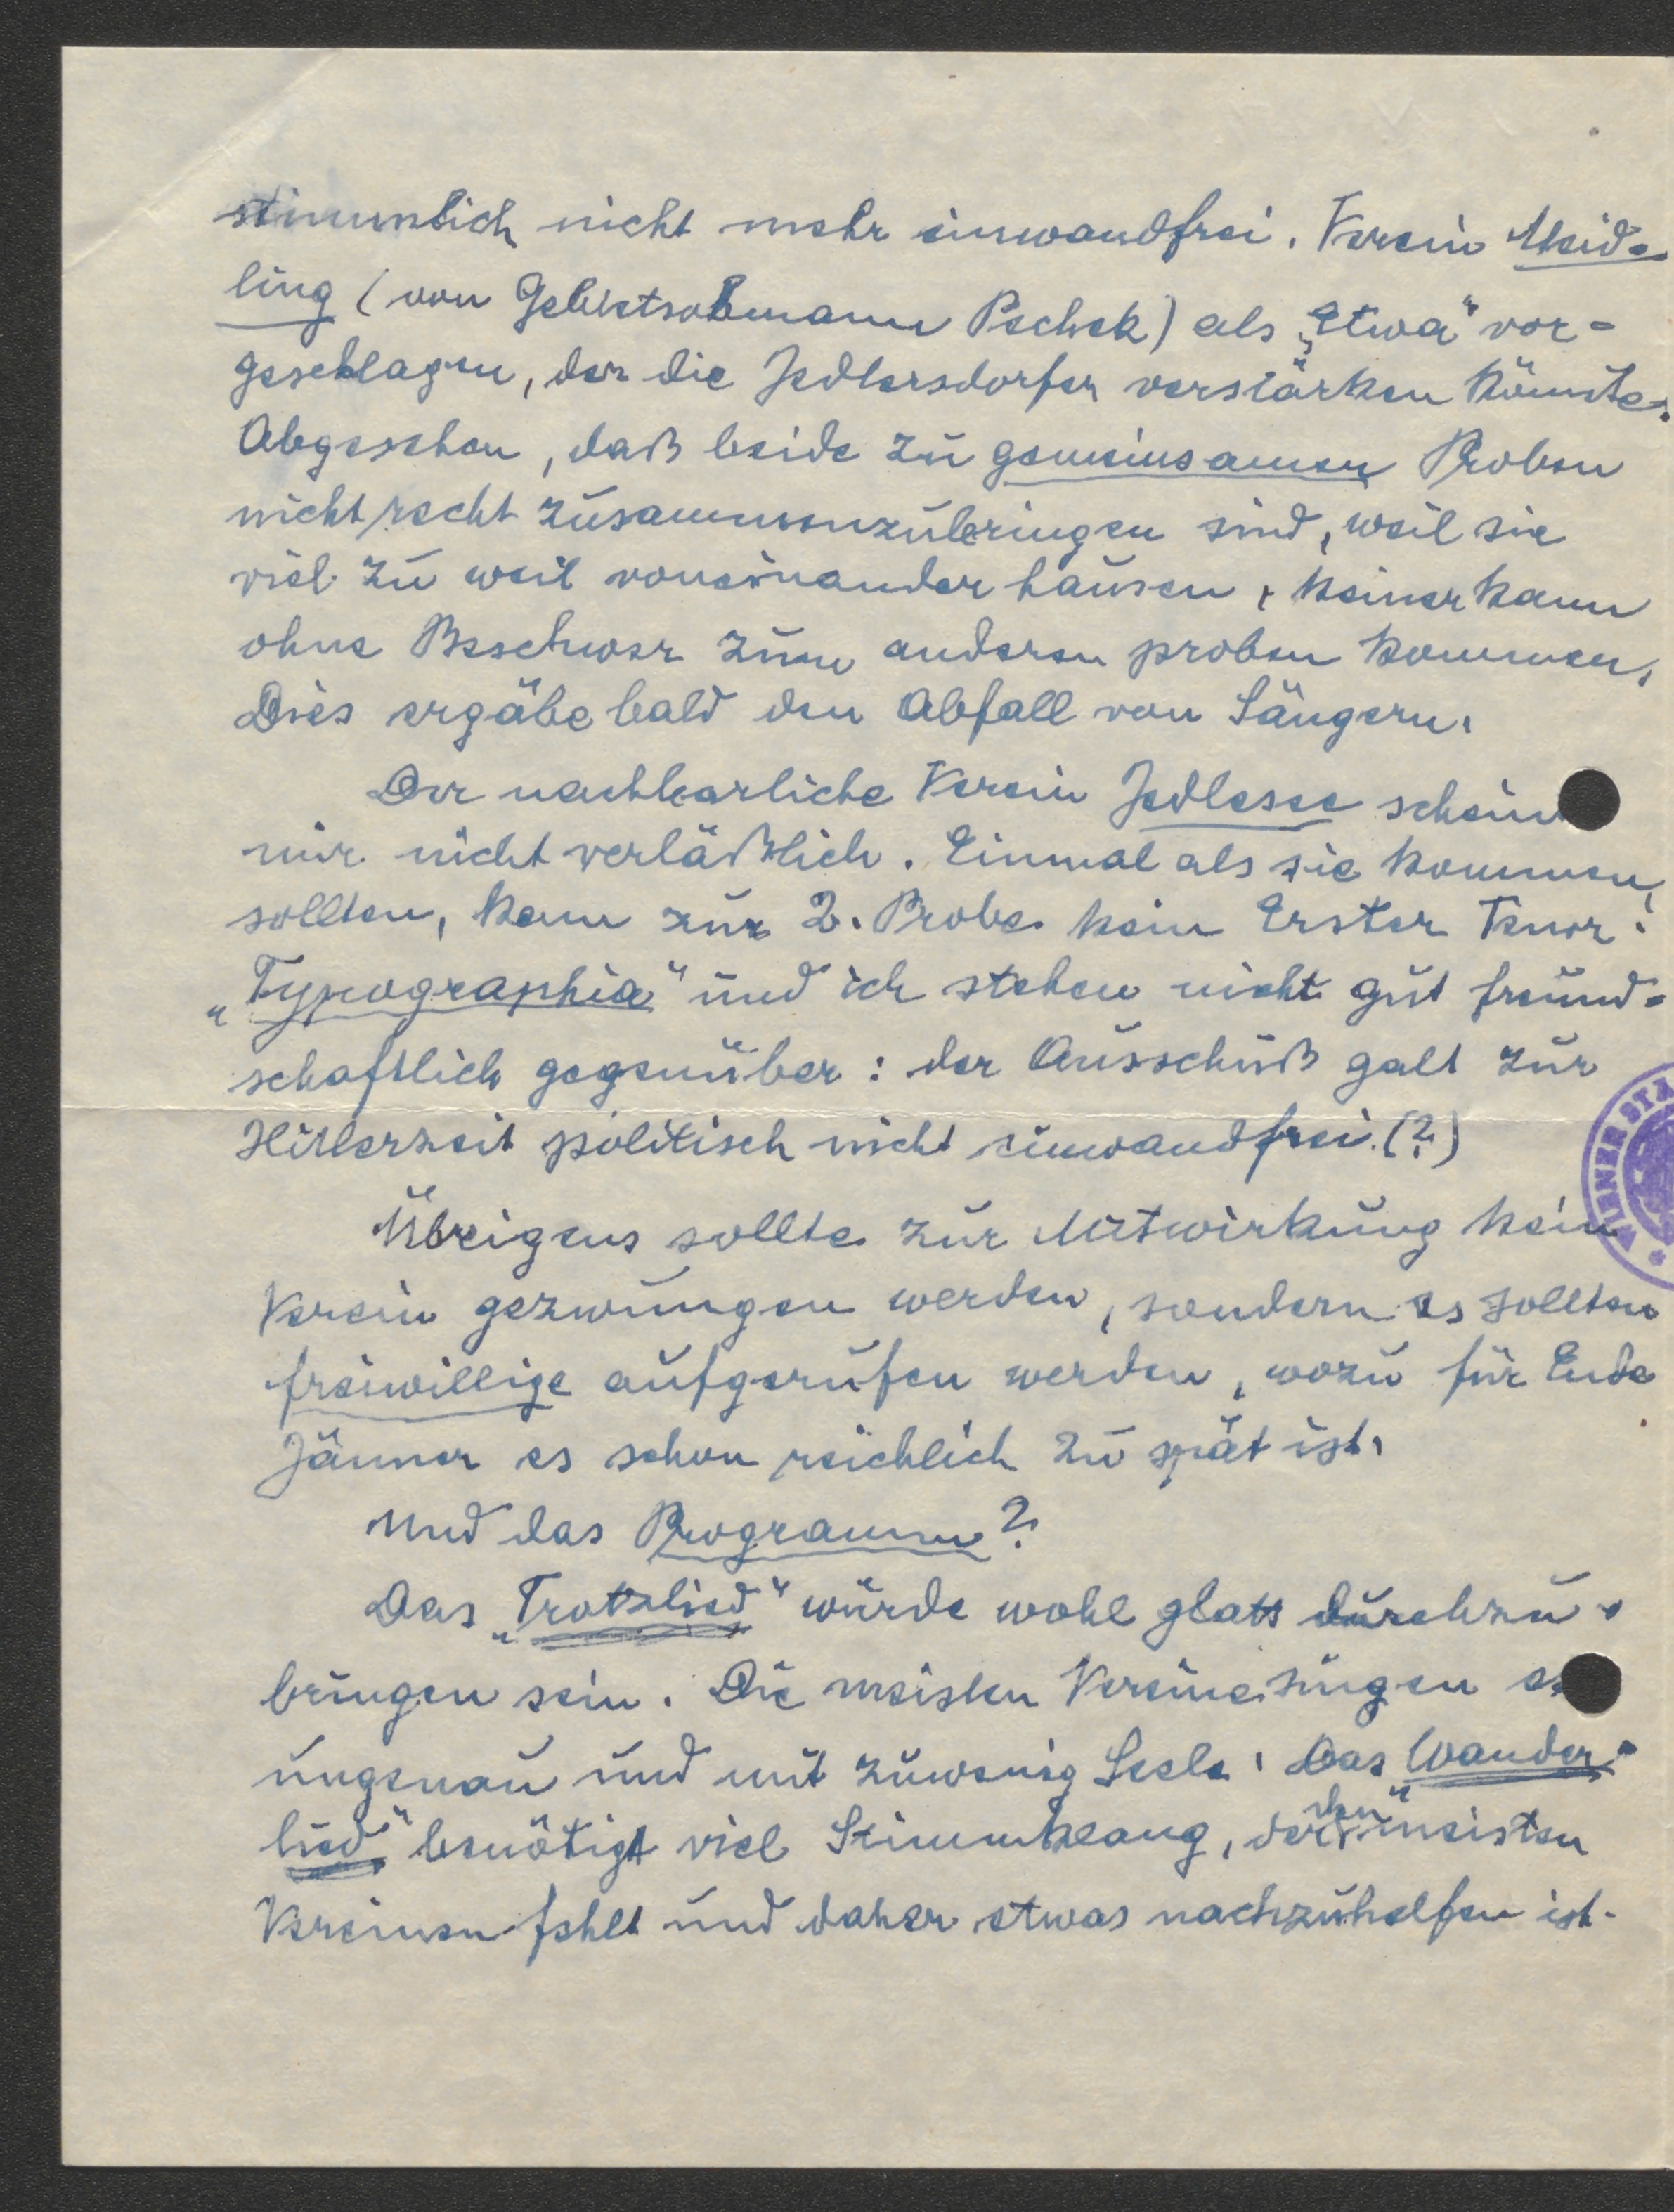 stimmlich nicht mehr einwandfrei. Verein Meid-
ling (von Gebietsobmann Pechek) als „Etwa“ vor-
geschlagen, der die Jedlersdorfer verstärken könnte.
Abgesehen, daß beide zu gemeinsamen Proben
nicht recht zusammenzubringen sind, weil sie
viel zu weit voneinander hausen, keiner kann
ohne Beschwer zum anderen proben kommen.
Dies ergäbe bald den Abfall von Sängern.
Der nachbarliche Verein Jedlesee schein
mir nicht verläßlich. Einmal als sie kommen
sollten, kam zur 2. Probe kein Erster Tenor.
„Typographia“ und ich stehen nicht gut freund-
schaftlich gegenüber: der Ausschuß galt zur
Hitlerzeit politisch nicht einwandfrei.(?)
Übrigens sollte zur Mitwirkung kein
Verein gezwungen werden, sondern es sollten
freiwillige aufgerufen werden, wozu für Ende
Jänner es schon reichlich zu spät ist.
Und das Programm?
Das „Trotzlied“ würde wohl glatt durchzu-
bringen sein. Die meisten Vereine singen es
ungenau und mit zuwenig Seele. Das Wander-
lied“ benötigt viel Stimmklang, der den meisten
Vereinen fehlt und daher etwas nachzuhelfen ist.
WIENER STA